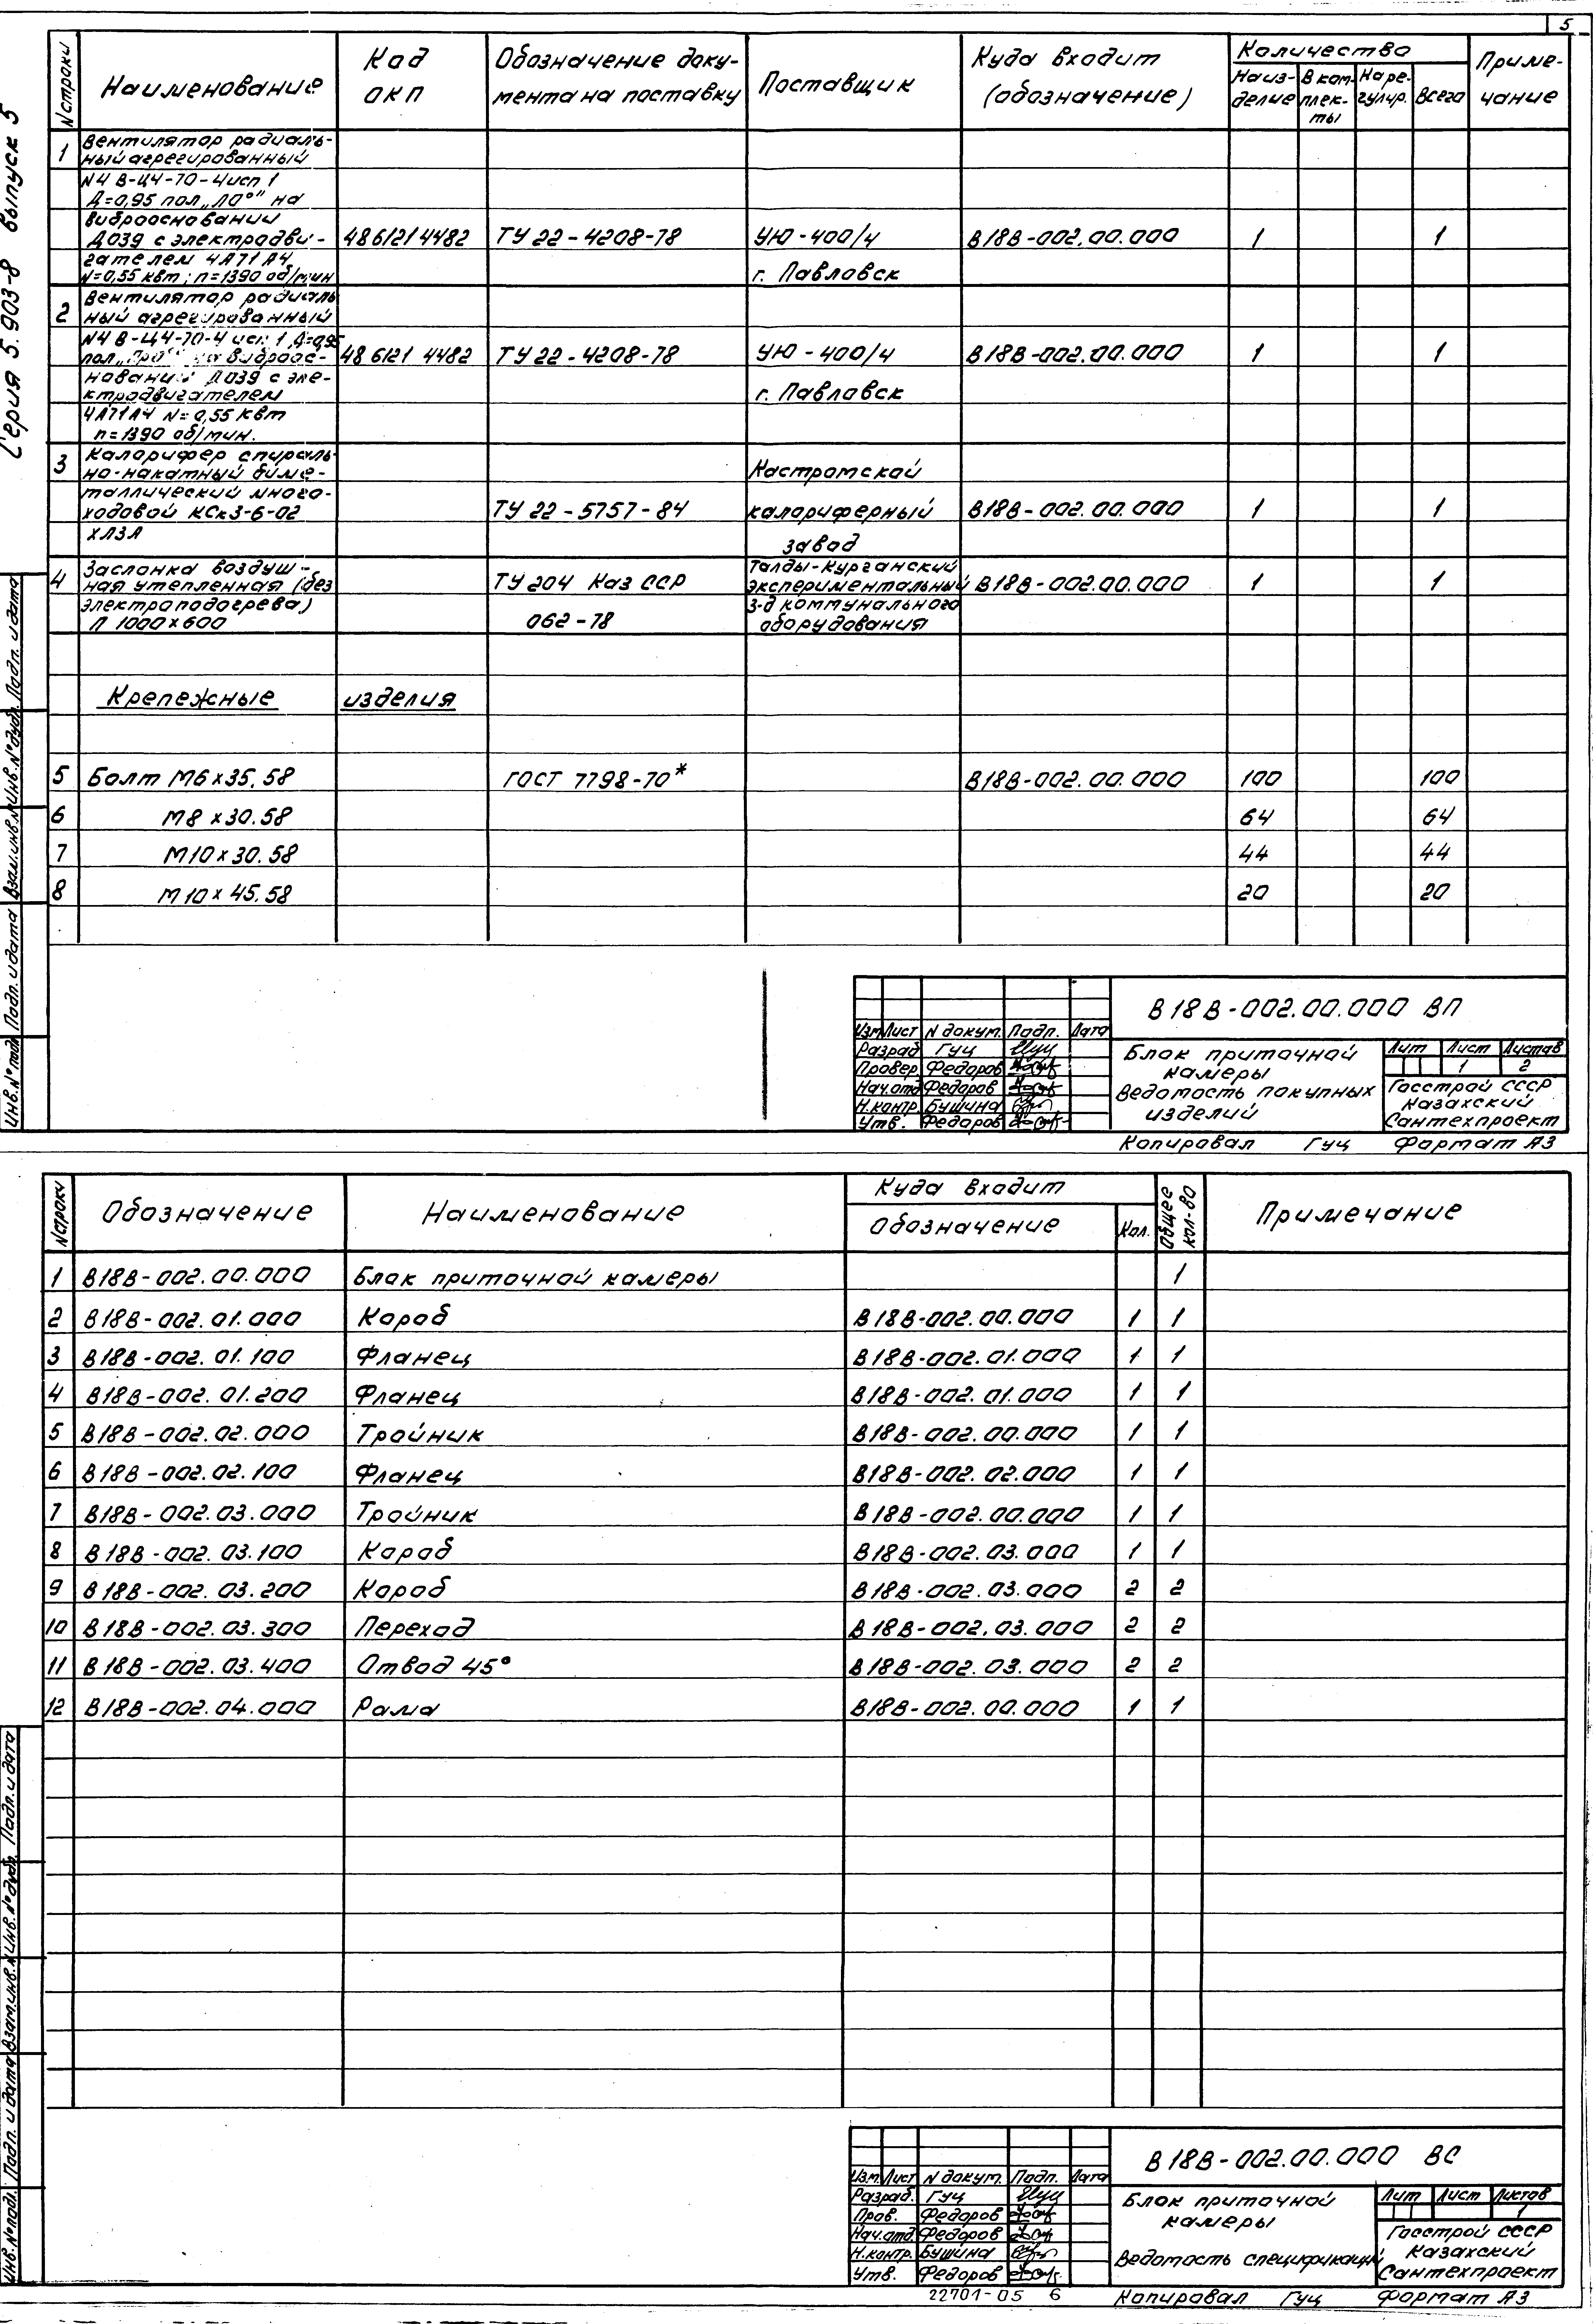 5
Серия 5.903-8 выпуск 5
N строки
Наименование
Код
ОКП
Обозначение доку-
мента на поставку
Поставщик
Куда входит
(обозначение)
Количество
На из-
делие
В ком-
плек-
ты
На ре-
гулир.
Всего
Приме-
чание
1 Вентилятор радиаль-
ный агрегированный
N4 В-Ц4-70-4 исп 1
Д=0,95 пол „Л0°" на
виброосновании
Д039 с электродви- 4861214482 ТУ 22-4208-78 УЮ-400/4 В18В-002.00.000 1 1
гателем 4А71А4 г. Павловск
N=0,55 квт; n=1390 об/мин
2 Вентилятор радиаль
ный агрегированный
N4 В-Ц4-70-4 исп 1, Д=0,95
пол. на виброос- 48 6121 4482 ТУ 22-4208-78 УЮ-400/4 В18В-002.00.000 1 1
новании Д039 с эле-
ктродвигателем г. Павловск
4А71А4 N=0,55 квт
n=1390 об/мин.
3 Калорифер спираль-
но-накатный биме- Костромской
таллический много-
ходовой КСк3-6-02 ТУ 22-5757-84 калориферный В18В-002.00.000 1 1
ХЛ3А завод
4 Заслонка воздуш- Талды-Курганский
ная утепленная (без ТУ 204 Каз ССР экспериментальный В18В-002.00.000 1 1
электроподогрева) з-д коммунального
П 1000×600 062-78 оборудования
Крепежные изделия
5 Болт М6×35.58 ГОСТ 7798-70* В18В-002.00.000 100 100
6 М8×30.58 64 64
7 М10×30.58 44 44
8 М10×45.58 20 20
В18В-002.00.000 ВП
Изм Лист N докум. Подп. Дата
Разраб Гуц
Провер. Федоров
Нач.отд Федоров
Н.контр. Бушина
Утв. Федоров
Блок приточной
камеры
Ведомость покупных
изделий
Лит Лист Листов
1 2
Госстрой СССР
Казахский
Сантехпроект
Копировал Гуц Формат А3
Инв.N°подл Подп. и дата Взам.инв.N Инв.N°дубл. Подп. и дата
N строки
Обозначение
Наименование
Куда входит
Обозначение
Кол.
Общее
кол-во
Примечание
1 В18В-002.00.000 Блок приточной камеры 1
2 В18В-002.01.000 Короб В18В-002.00.000 1 1
3 В18В-002.01.100 Фланец В18В-002.01.000 1 1
4 В18В-002.01.200 Фланец В18В-002.01.000 1 1
5 В18В-002.02.000 Тройник В18В-002.00.000 1 1
6 В18В-002.02.100 Фланец В18В-002.02.000 1 1
7 В18В-002.03.000 Тройник В18В-002.00.000 1 1
8 В18В-002.03.100 Короб В18В-002.03.000 1 1
9 В18В-002.03.200 Короб В18В-002.03.000 2 2
10 В18В-002.03.300 Переход В18В-002.03.000 2 2
11 В18В-002.03.400 Отвод 45° В18В-002.03.000 2 2
12 В18В-002.04.000 Рама В18В-002.00.000 1 1
В18В-002.00.000 ВС
Изм. Лист N докум. Подп. Дата
Разраб. Гуц
Пров. Федоров
Нач.отд. Федоров
Н.контр. Бушина
Утв. Федоров
Блок приточной
камеры
Ведомость спецификаций
Лит Лист Листов
1
Госстрой СССР
Казахский
Сантехпроект
22701-05 6
Копировал Гуц Формат А3
Инв.N°подл. Подп. и дата Взам.инв.N Инв.N°дубл. Подп. и дата